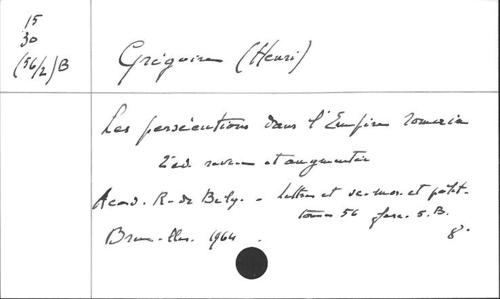 15
30
(56/2)B
Grégoire (Henri)
Les persécutions dans l'Empire romain
2e éd. revue et augmentée
Acad. R. de Belg. - Lettres et sc. mor. et polit.
tome 56 fasc. 5. B.
Bruxelles. 1964. 8°